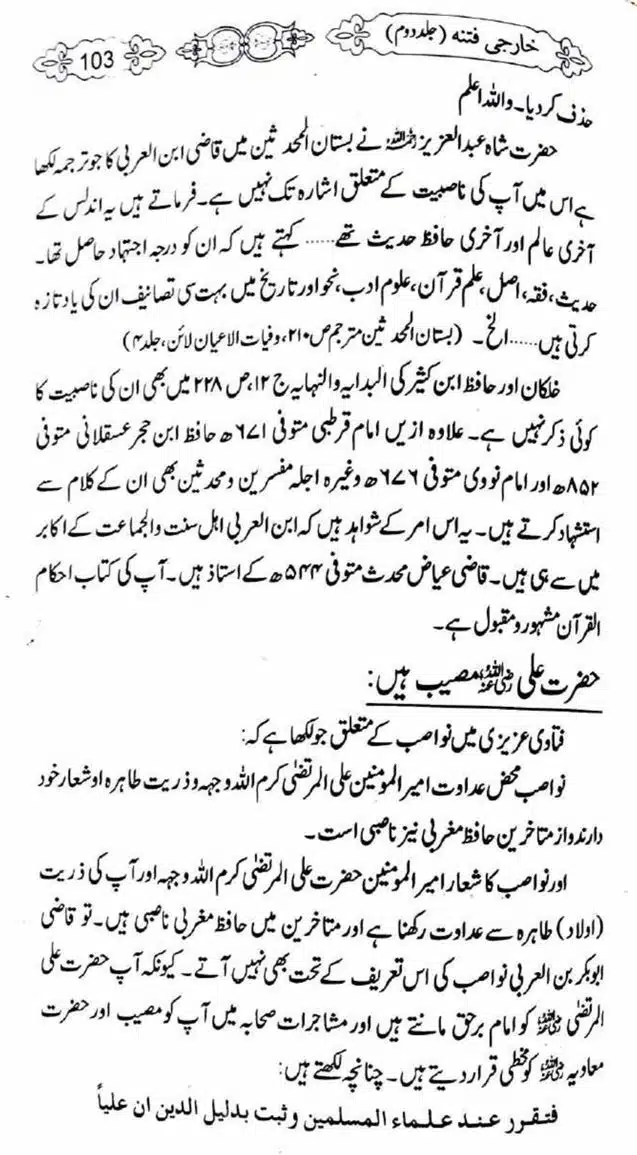 خارجی فتنہ (جلد دوم)
103
حذف کر دیا۔ واللہ اعلم
حضرت شاہ عبدالعزیز رحمہ اللہ نے بستان المحدثین میں قاضی ابن العربی کا جو ترجمہ لکھا
ہے اس میں آپ کی ناصبیت کے متعلق اشارہ تک نہیں ہے۔ فرماتے ہیں یہ اندلس کے
آخری عالم اور آخری حافظ حدیث تھے...... کہتے ہیں کہ ان کو درجہ اجتہاد حاصل تھا۔
حدیث، فقہ، اصل، علم قرآن، علوم ادب، نحو اور تاریخ میں بہت سی تصانیف ان کی یاد تازہ
کرتی ہیں...... الخ۔ (بستان المحدثین مترجم ص ۲۱۰، وفیات الاعیان لائن، جلد ۴)
خلکان اور حافظ ابن کثیر کی البدایہ والنہایہ ج ۱۲، ص ۲۲۸ میں بھی ان کی ناصبیت کا
کوئی ذکر نہیں ہے۔ علاوہ ازیں امام قرطبی متوفی ۶۷۱ھ حافظ ابن حجر عسقلانی متوفی
۸۵۲ھ اور امام نووی متوفی ۶۷۶ھ وغیرہ اجلہ مفسرین و محدثین بھی ان کے کلام سے
استشہاد کرتے ہیں۔ یہ اس امر کے شواہد ہیں کہ ابن العربی اہل سنت والجماعت کے اکابر
میں سے ہی ہیں۔ قاضی عیاض محدث متوفی ۵۴۴ھ کے استاذ ہیں۔ آپ کی کتاب احکام
القرآن مشہور و مقبول ہے۔
حضرت علی رضی اللہ عنہ مصیب ہیں:
فتاوی عزیزی میں نواصب کے متعلق جو لکھا ہے کہ:
نواصب محض عداوت امیر المومنین علی المرتضیٰ کرم اللہ وجہہ و ذریت طاہرہ او شعار خود
دارند و از متاخرین حافظ مغربی نیز ناصبی است۔
اور نواصب کا شعار امیر المومنین حضرت علی المرتضیٰ کرم اللہ وجہہ اور آپ کی ذریت
(اولاد) طاہرہ سے عداوت رکھنا ہے اور متاخرین میں حافظ مغربی ناصبی ہیں۔ تو قاضی
ابوبکر بن العربی نواصب کی اس تعریف کے تحت بھی نہیں آتے۔ کیونکہ آپ حضرت علی
المرتضیٰ رضی اللہ عنہ کو امام برحق مانتے ہیں اور مشاجرات صحابہ میں آپ کو مصیب اور حضرت
معاویہ رضی اللہ عنہ کو مخطی قرار دیتے ہیں۔ چنانچہ لکھتے ہیں:
فتقرر عند علماء المسلمين و ثبت بدليل الدين ان علياً